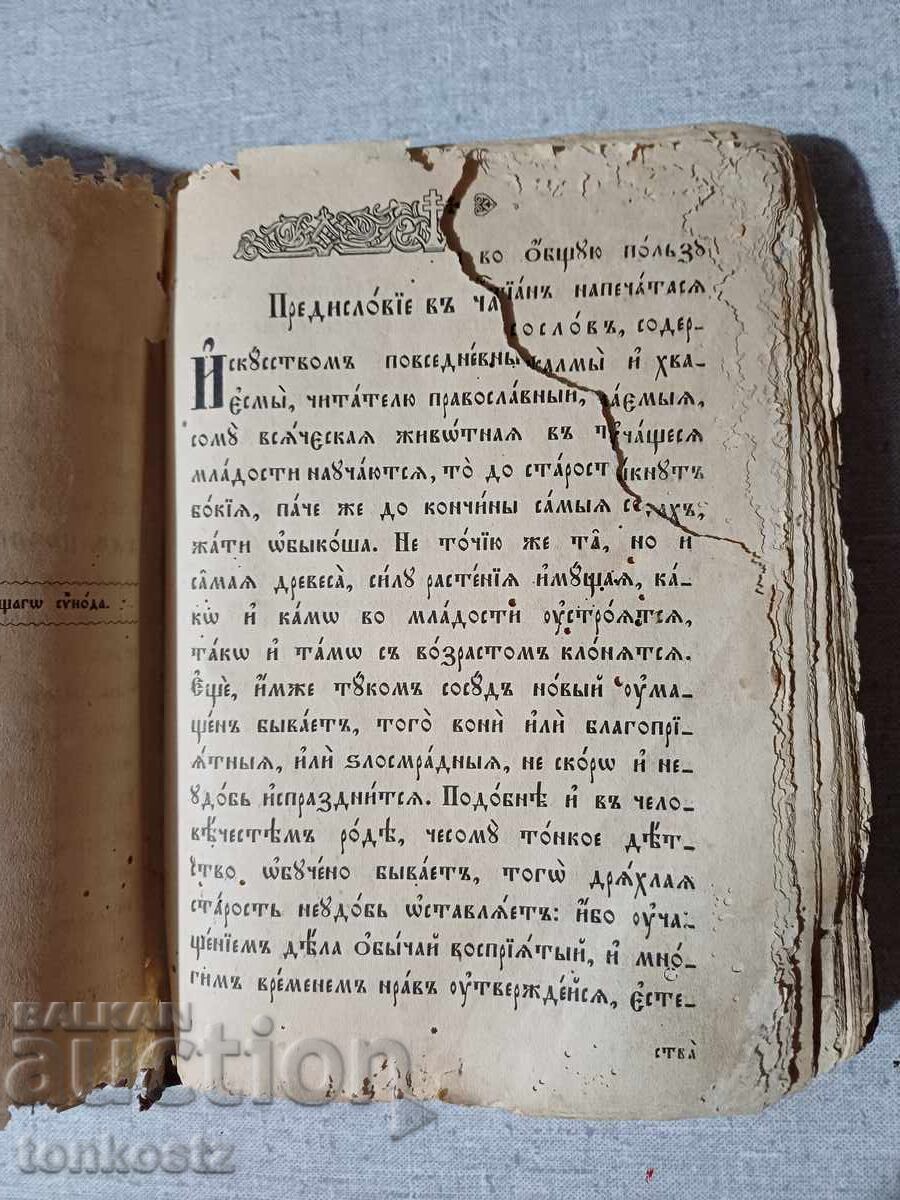 щагѡ сѵно́да.
во ѻ҆́бщую по́льзу
Предисло́вїе въ ча
їа́нъ напеча́тася
сосло́въ, содер-
И҆скꙋсствомъ повседне́вны
ѱалмы̀ и҆ хва-
є҆смы̀, чита́телю правосла́вный,
а́емыѧ,
сомꙋ̀ всѧ́ческаѧ живѡ́тнаѧ въ
ча́щесѧ
мла́дости наꙋча́ютсѧ, то̀ до ста́рост
кнꙋтъ
бо́кїѧ, па́че же до кончи́ны са́мыѧ
жа́ти ѡ҆быко́ша. Не то́чїю же та̑, но и
са̑маѧ древеса̀, си́лꙋ расте́нїѧ и҆мꙋ́щаѧ, ка́-
кѡ и҆ ка́мѡ во мла́дости ᲂу҆стро́ѧтсѧ,
та́кѡ и҆ та́мѡ съ во́зрастомъ клонѧ́тсѧ.
Є҆щѐ, и҆́мже тꙋ́комъ сосꙋ́дъ но́вый ᲂу҆ма-
ще́нъ быва́етъ, того̀ вонѝ и҆лѝ благопрїѧ-
ѧ́тныѧ, и҆лѝ ѕлосмра́дныѧ, не ско́рѡ и҆ не-
ꙋдо́бь и҆спраздни́тсѧ. Подо́бнѣ и҆ въ чело-
вѣ́честѣмъ ро́дѣ, чесомꙋ̀ то́нкое дѣ́т-
ство ѡ҆бꙋче́но быва́етъ, тогѡ̀ дрѧ́хлаѧ
ста́рость неꙋдо́бь ѡ҆ставлѧ́етъ: и҆́бо ᲂу҆ча-
ще́нїемъ дѣ́ла ѻ҆бы́чай воспрїѧ́тый, и҆ мно́-
гимъ вре́менемъ нра́въ ᲂу҆твержде́йсѧ, є҆сте-
ства̀
BALKAN
auction
tonkostz